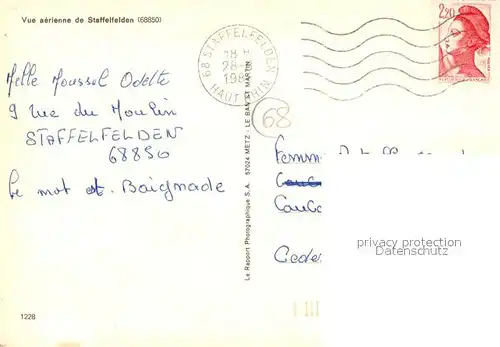 Vue aérienne de Staffelfelden (68850)
68 STAFFELFELDEN
18 H
28-
198
HAUT RHIN
2,20
68
Melle Moussel Odette
9 rue du Moulin
STAFFELFELDEN
68850
Le mot et Baignade
Le Rapport Photographique S.A. 57024 METZ - LE BAN ST MARTIN
Femm
Cedex
privacy protection
Datenschutz
1228